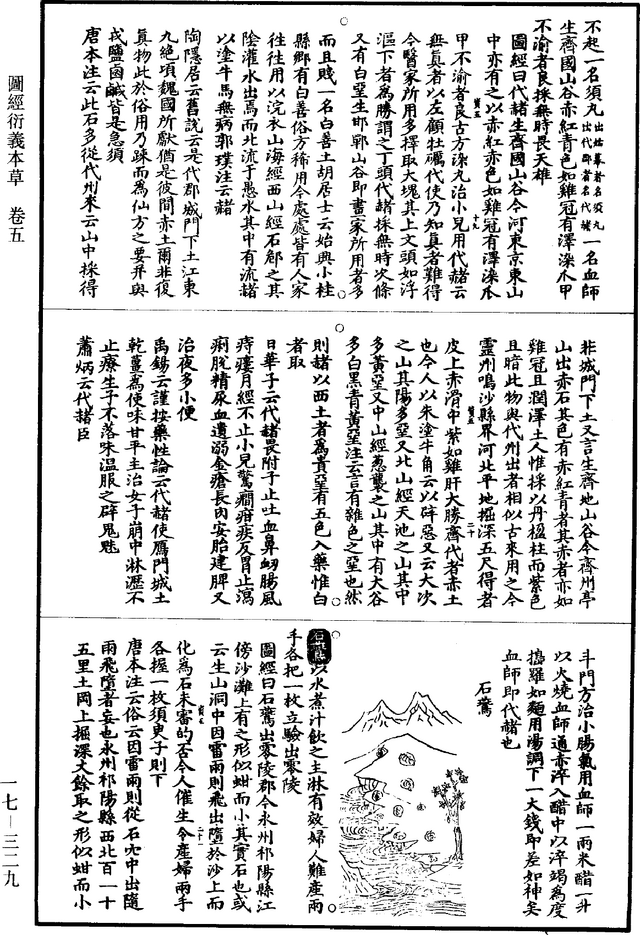 圖經衍義本草 卷五
不起一名須丸出姑幕者名須丸出代郡者名代赭一名血師
生齊國山谷赤紅青色如雞冠有澤染爪甲
不渝者良採無時畏天雄
圖經曰代赭生齊國山谷今河東京東山
中亦有之以赤紅青色如雞冠有澤染爪
甲不渝者良古方深丸治小兒用代赭云
無真者以左顧牡礪代使乃知真者難得
今醫家所用多擇取大塊其上文頭如浮
漚下者為勝謂之丁頭代赭採無時次條
又有白堊生邯鄲山谷即畫家所用者多
而且賤一名白善土胡居士云始興小桂
縣鄉有白善俗方稀用今處處皆有人家
往往用以浣衣山海經西山經石郄之其
陰灌水出焉而北流于愚水其中有流赭
以塗牛馬無病郭璞注云赭
陶隱居云舊說云是代郡城門下土江東
久絕頃魏國所獻猶是彼間赤土爾非復
真物此於俗用乃踈而為仙方之要并與
戎鹽鹵鹹皆是急須
唐本注云此石多從代州來云山中採得
非城門下土又言生齊地山谷今齊州亭
山出赤石其色有赤紅青者其赤者亦如
雞冠且潤澤土人惟採以丹楹柱而紫色
且暗此物與代州出者相似古來用之今
靈州鳴沙縣界河北平地掘深五尺得者
皮上赤滑中紫如雞肝大勝齊代者赤土
也今人以朱塗牛角云以辟惡又云大次
之山其陽多堊又北山經天池之山其中
多黃堊又中山經葱聾之山其中有大谷
多白黑青黃堊注云言有雜色之堊也然
則赭以西土者為貴堊有五色入藥惟白
者取
日華子云代赭畏附子止吐血鼻衄腸風
痔瘻月經不止小兒驚癇疳疾反胃止瀉
痢脫精尿血遺溺金瘡長肉安胎建脾又
治夜多小便
禹錫云謹按藥性論云代赭使鴈門城土
乾薑為使味甘平主治女子崩中淋瀝不
止療生子不落味溫服之辟鬼魅
蕭炳云代赭臣
斗門方治小腸氣用血師一兩米醋一升
以火燒血師通赤淬入醋中以淬竭為度
搗羅如麵用湯調下一大錢即差如神矣
血師即代赭也
石鷰
石鷰以水煮汁飲之主淋有效婦人難產兩
手各把一枚立驗出零陵
圖經曰石鷰出零陵郡今永州祁陽縣江
傍沙灘上有之形似蚶而小其實石也或
云生山洞中因雷雨則飛出墮於沙上而
化為石未審的否今人催生令產婦兩手
各握一枚須臾子則下
唐本注云俗云因雷雨則從石穴中出隨
雨飛墮者妄也永州祁陽縣西北百一十
五里土岡上掘深丈餘取之形似蚶而小
一七—三二九